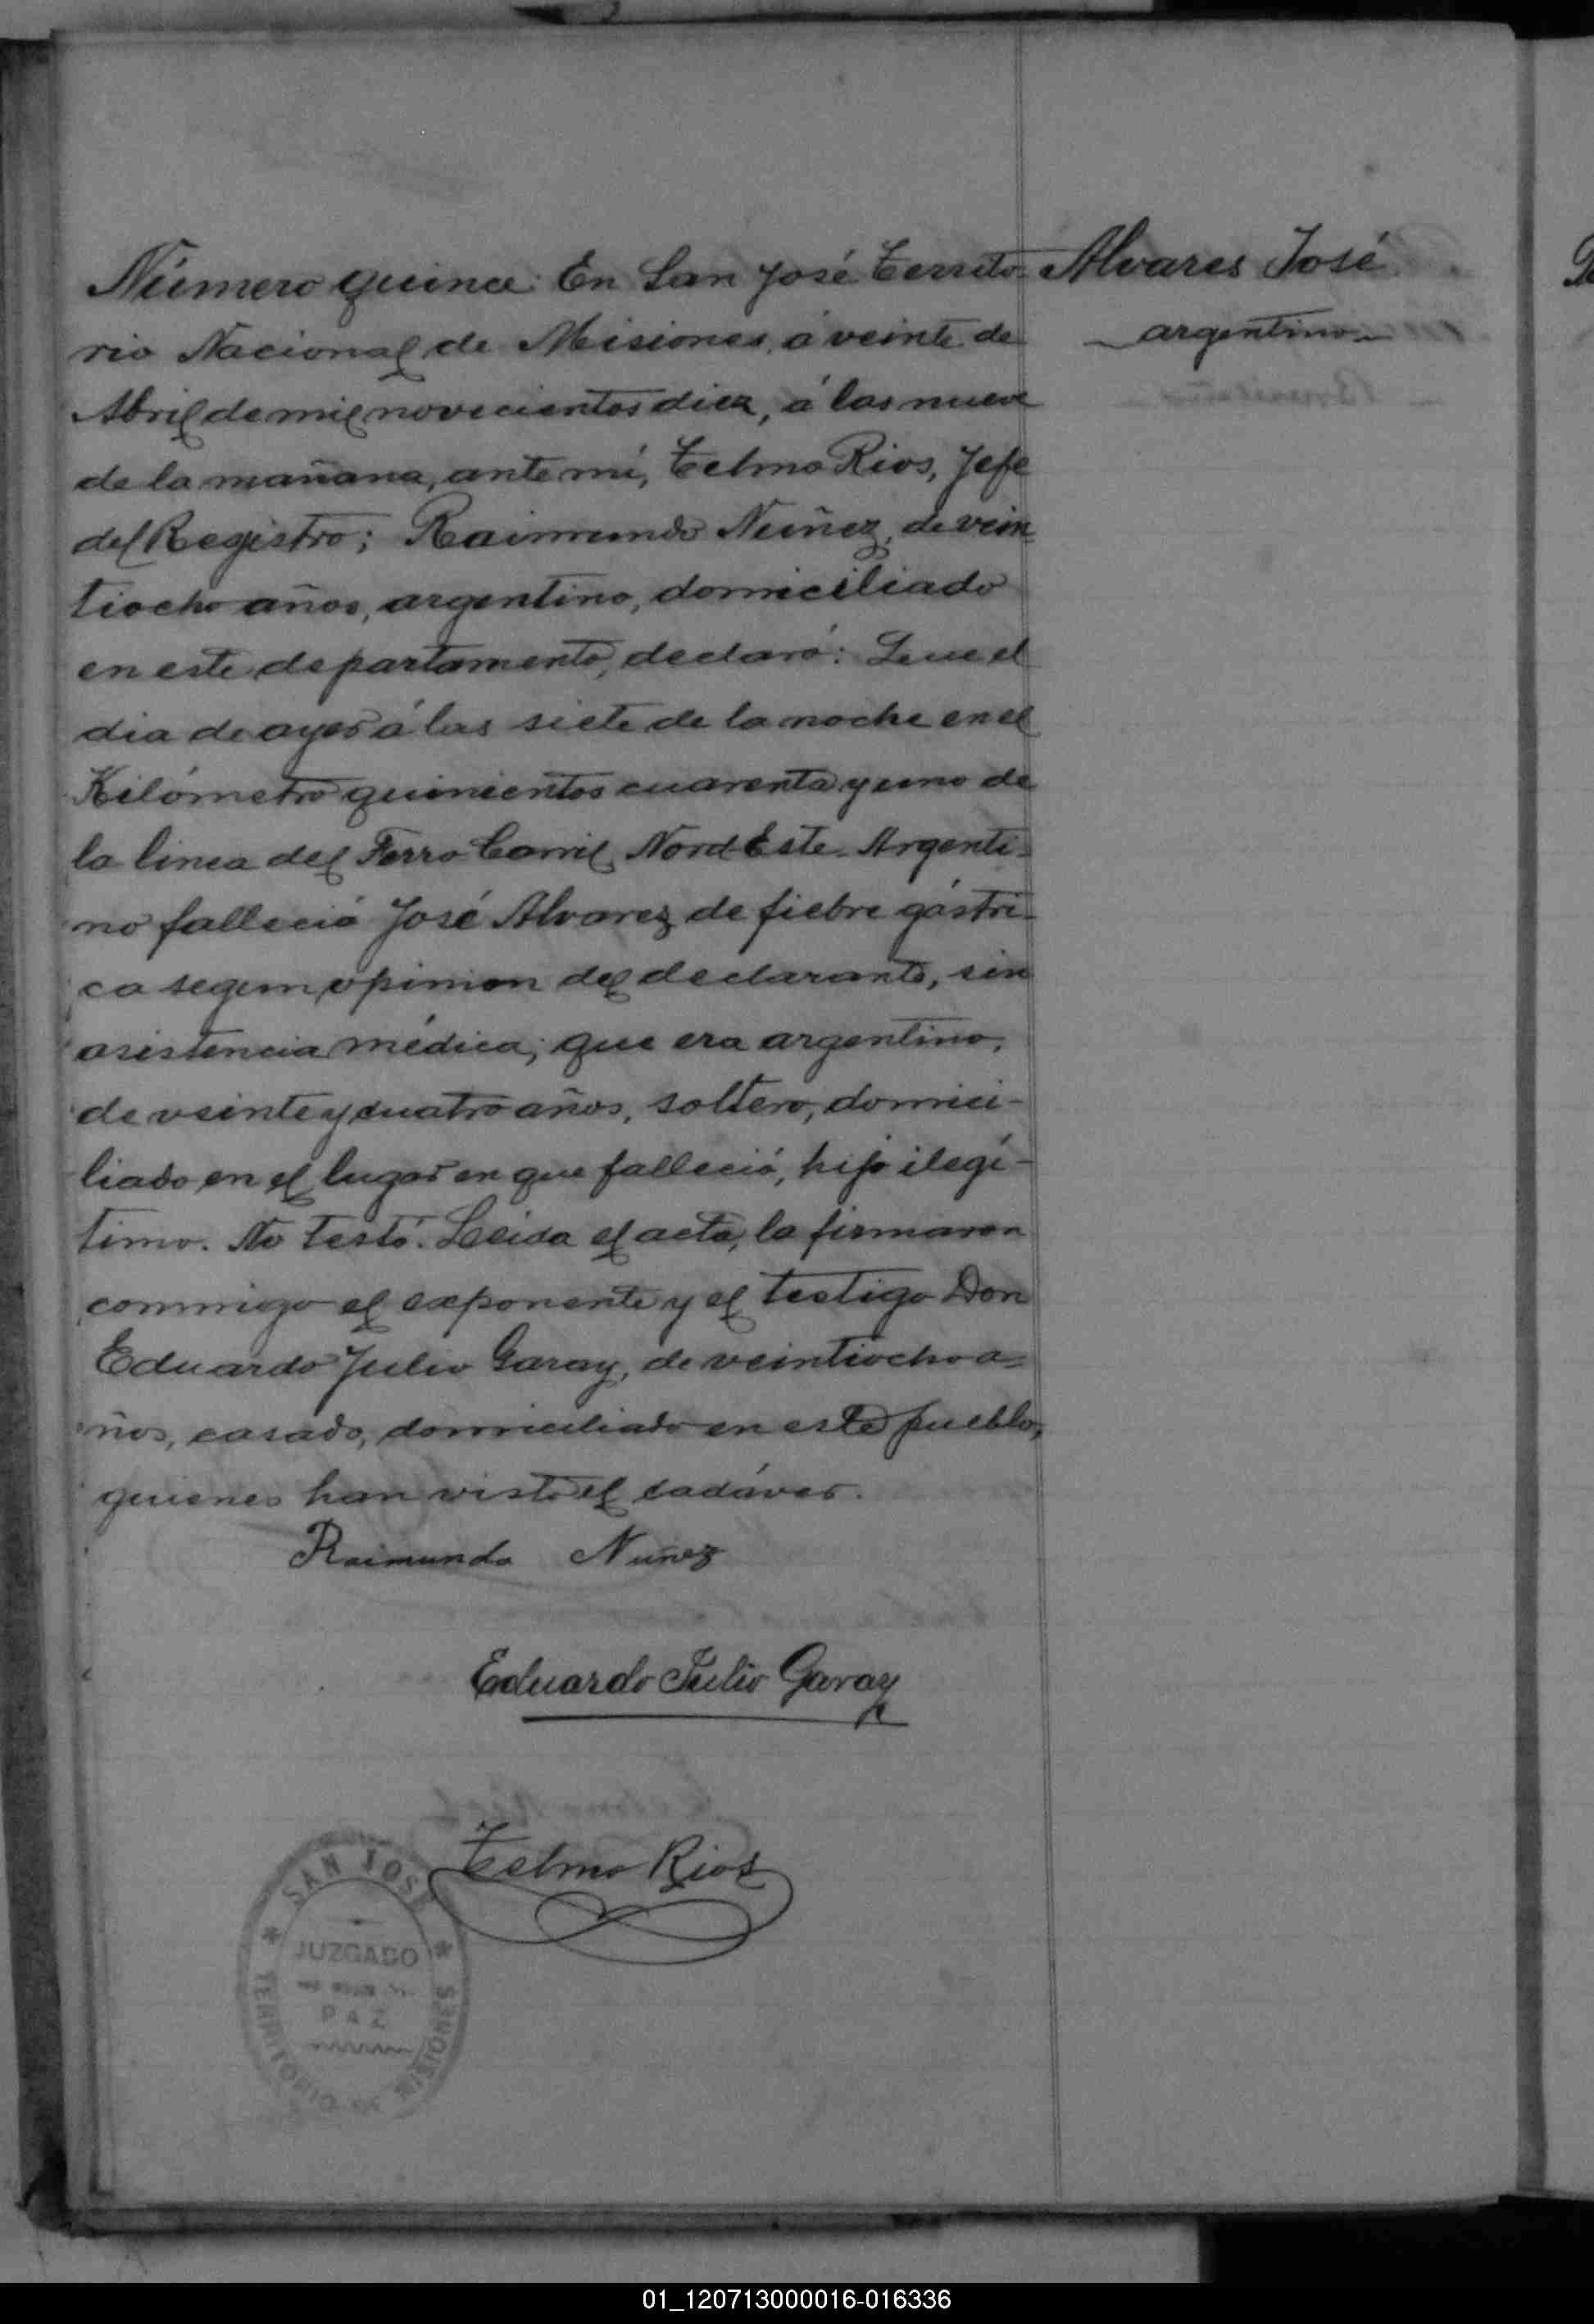 Número quince: En San José Territo-
rio Nacional de Misiones, á veinte de
Abril de mil novecientos diez, á las nueve
de la mañana, ante mí, Telmo Rios, Jefe
del Registro; Raimundo Nuñez, de vein-
tiocho años, argentino, domiciliado
en este departamento, declaró: Que el
dia de ayer á las siete de la noche en el
Kilómetro quinientos cuarenta y uno de
la linea del Ferro Carril Nord-Este Argenti-
no falleció José Alvarez de fiebre gástri-
ca segun opinion del declarante, sin
asistencia médica; que era argentino,
de veinte y cuatro años, soltero, domici-
liado en el lugar en que falleció, hijo ilegí-
timo. No testó. Leida el acta, la firmaron
conmigo el exponente y el testigo Don
Eduardo Julio Garay, de veintiocho a-
ños, casado, domiciliado en este pueblo,
quienes han visto el cadáver.
Alvares José
argentino
Raimundo Nuñez
Eduardo Julio Garay
Telmo Rios
SAN JOSE
JUZGADO
PAZ
TERRITORIO MISIONES
01_120713000016-016336